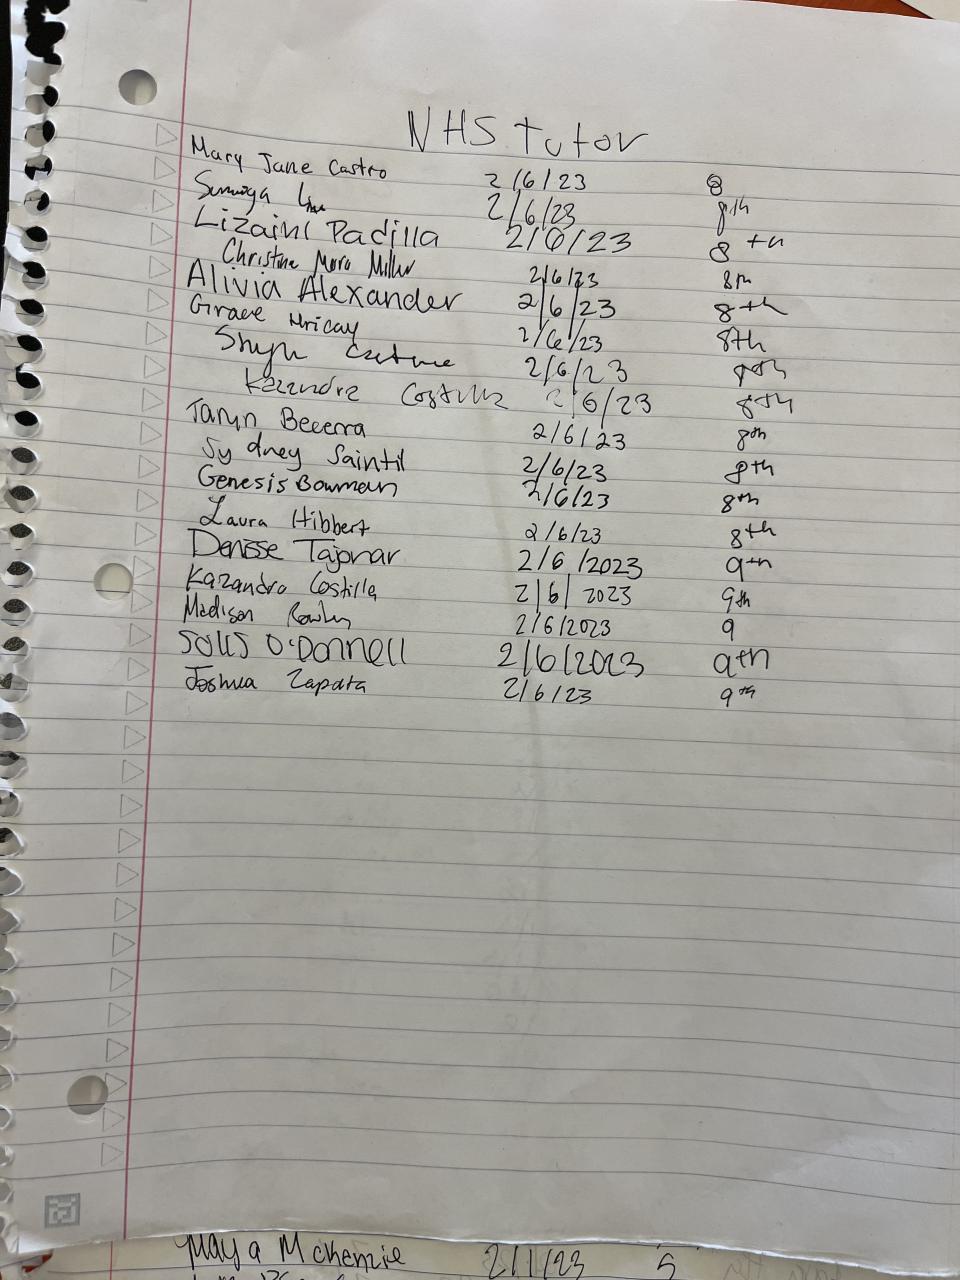 NHS Tutor
Mary Jane Castro 2/6/23 8
2/6/23 8th
Lizaini Padilla 2/6/23 8th
Christine Mora Miller 2/6/23 8th
Alivia Alexander 2/6/23 8th
Grace 2/6/23 8th
2/6/23
2/6/23 8th
Taryn Becerra 2/6/23 8th
Sydney Saintil 2/6/23 8th
Genesis Bowman 2/6/23 8th
Laura Hibbert 2/6/23 8th
Denisse Tajonar 2/6/2023 9th
Kazandra Costilla 2/6/2023 9th
Madison 2/6/2023 9
O'Donnell 2/6/2023 9th
Joshua Zapata 2/6/23 9th
Maya Mckenzie 2/1/23